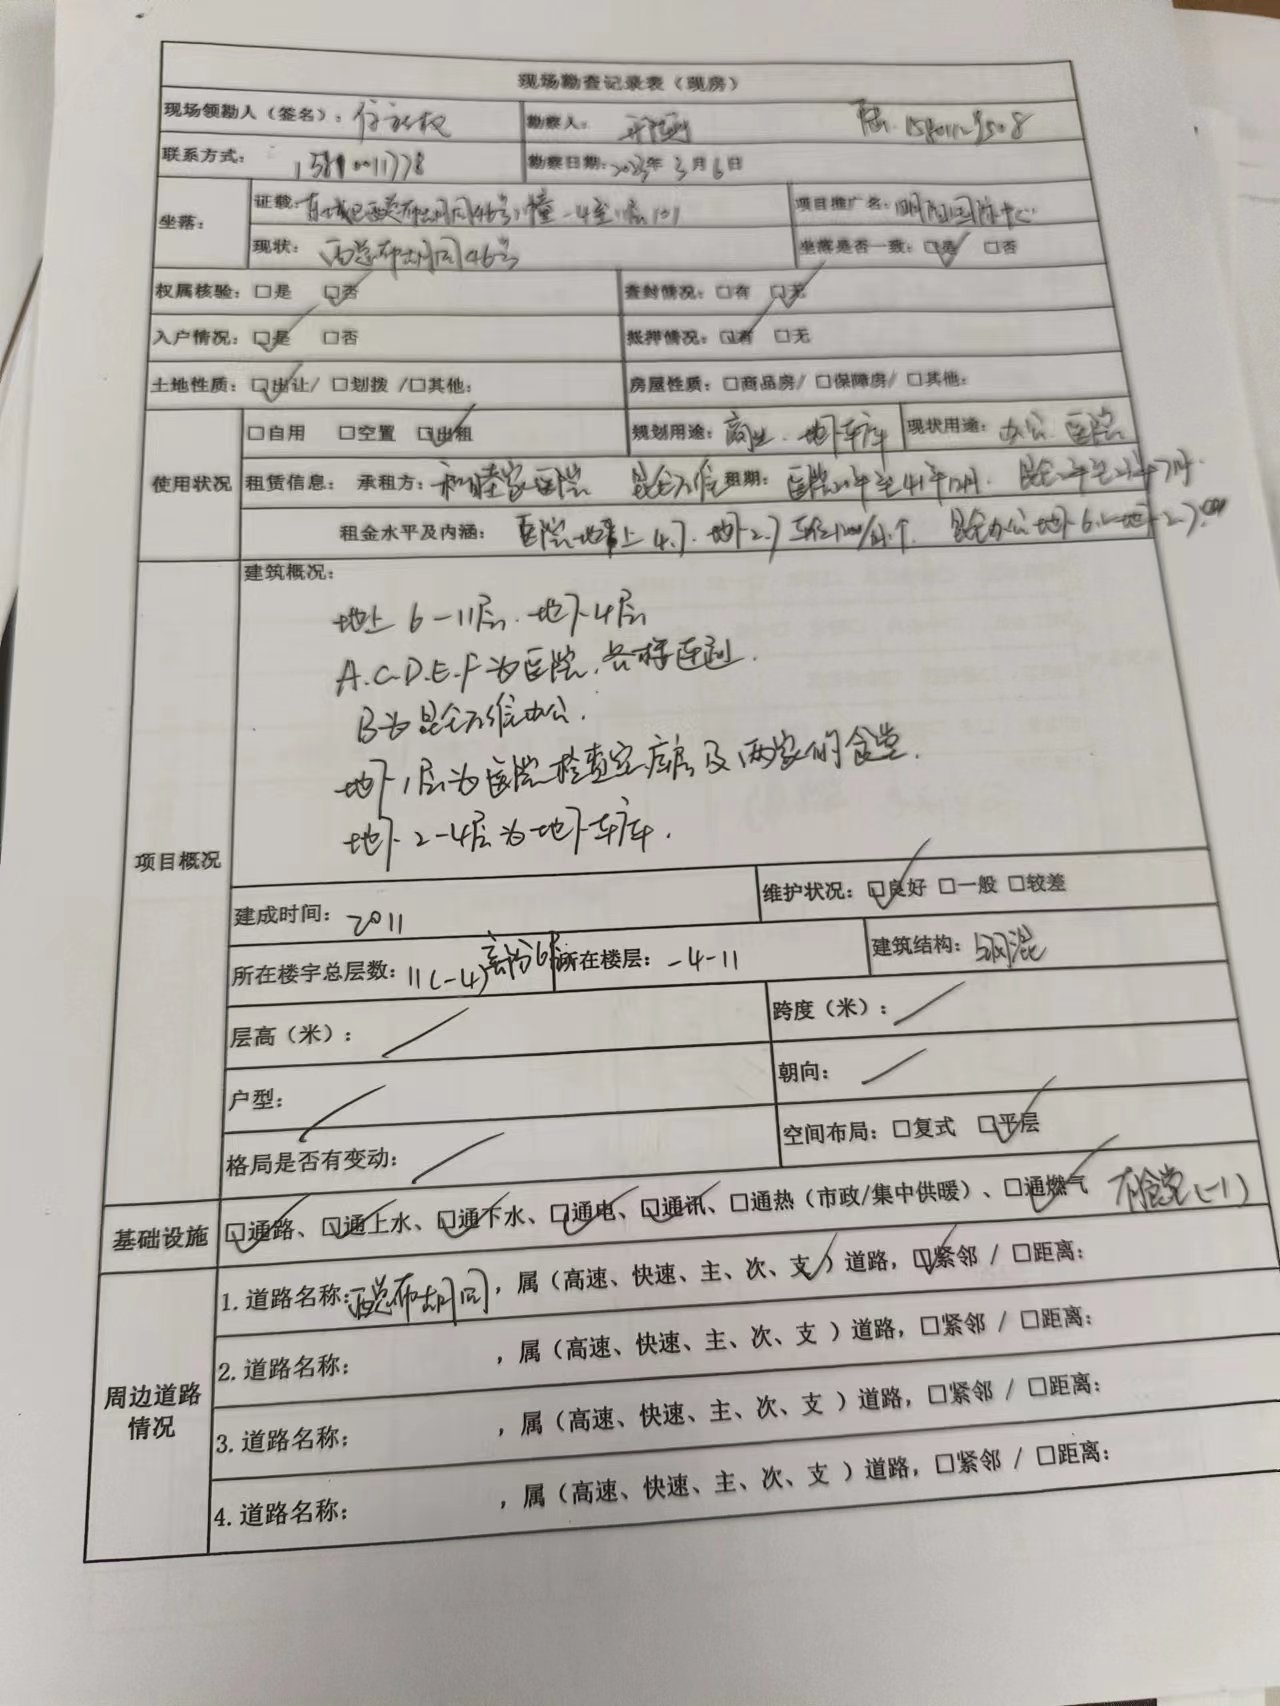 现场勘查记录表（现房）
现场领勘人（签名）： 勘察人：
联系方式： 勘察日期：2023年3月6日
坐落： 证载：东城区西总布胡同46号1幢-4至11层101 项目推广名：明阳国际中心
现状：西总布胡同46号 坐落是否一致：☑是 □否
权属核验：□是 ☑否 查封情况：□有 ☑无
入户情况：☑是 □否 抵押情况：☑有 □无
土地性质：☑出让/ □划拨 /□其他： 房屋性质：□商品房/ □保障房/ □其他：
使用状况 □自用 □空置 ☑出租 规划用途：商业、地下车库 现状用途：办公、医院
租赁信息： 承租方：和睦家医院 昆仑万维 租期：医院
租金水平及内涵：医院地上4.7、地下2.7 昆仑办公地上
项目概况 建筑概况：
地上6-11层、地下4层
A.C.D.E.F为医院、各楼连通.
B为昆仑万维办公.
地下1层为医院检查室、库房及两家的食堂.
地下2-4层为地下车库.
建成时间：2011 维护状况：☑良好 □一般 □较差
所在楼宇总层数：11(-4)部分6层 所在楼层：-4-11 建筑结构：钢混
层高（米）：／ 跨度（米）：／
户型：／ 朝向：／
格局是否有变动：／ 空间布局：□复式 ☑平层
基础设施 ☑通路、☑通上水、☑通下水、☑通电、☑通讯、□通热（市政/集中供暖）、☑通燃气 有食堂(-1)
周边道路情况 1.道路名称：西总布胡同，属（高速、快速、主、次、支✓）道路，☑紧邻 / □距离：
2.道路名称： ，属（高速、快速、主、次、支 ）道路，□紧邻 / □距离：
3.道路名称： ，属（高速、快速、主、次、支 ）道路，□紧邻 / □距离：
4.道路名称： ，属（高速、快速、主、次、支 ）道路，□紧邻 / □距离：